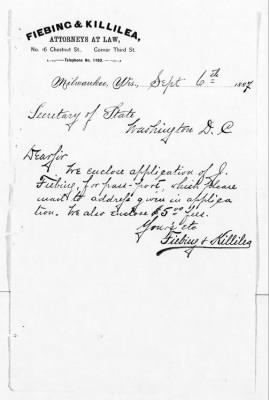 FIEBING & KILLILEA,
ATTORNEYS AT LAW,
No. 16 Chestnut St., Corner Third St.
Telephone No. 1180.
Milwaukee, Wis., Sept 6th 1887
Secretary of State
Washington D. C
Dear Sir
We enclose application of J.
Fiebing, for pass-port, which please
mail to address given in applica
tion. We also enclose $5.00 fees.
Yours etc
Fiebing & Killilea